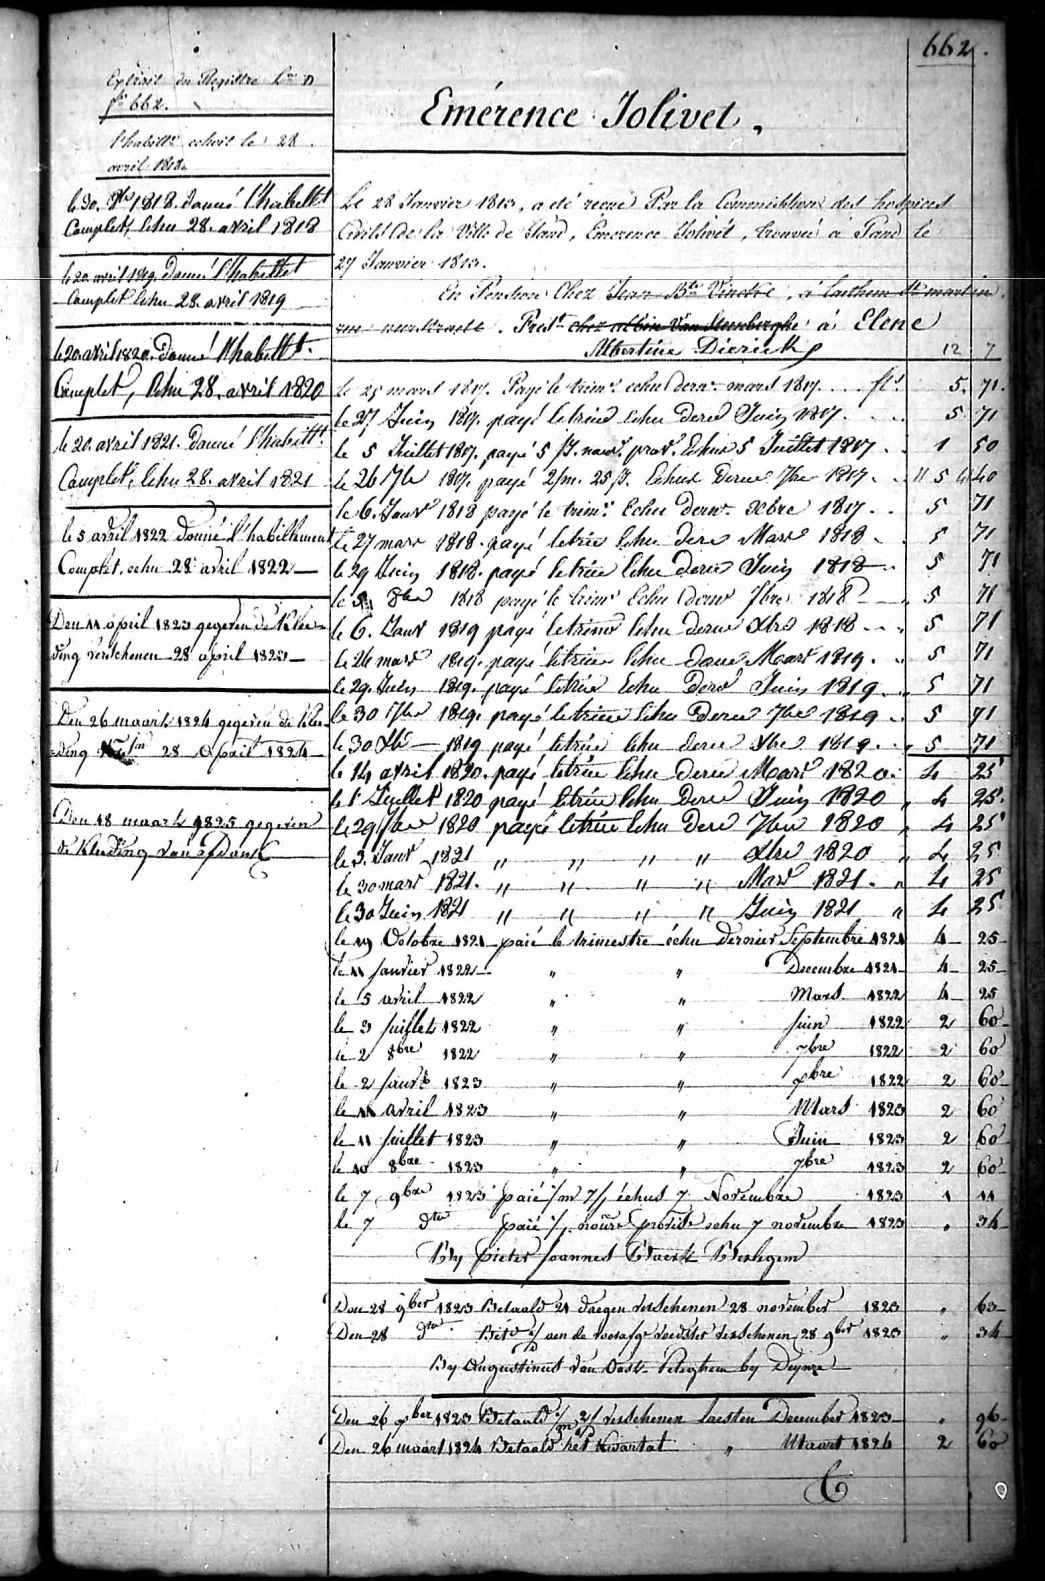 662.
Extrait du Registre
f° 662.
l'habillt echoit le 28
avril 1818.
le 30. 1818. donné l'habillt
Complet, echu 28. avril 1818
le 20 avril 1819. Donné l'habillet
Complet Echu 28 avril 1819
le 20 avril 1820. Donné l'habillt.
Complet, Echu 28. avril 1820
le 20. avril 1821. Donné l'habillt.
Complet, Echu 28. avril 1821
le 5 avril 1822 donné l'habillement
Complet. echu 28 avril 1822
Den 11 april 1823 gegeven de Klee-
ding verschenen 28 april 1823
Den 26 maart 1824 gegeven de klee-
ding 28 April 1824
Den 18 maart 1825 gegeven
de Kleeding
Emérence Jolivet.
Le 28 Janvier 1813, a été recue Par la Commission des hospices
Civils de la Ville de Gand, Emérence Jolivet, trouvée à Gand le
27 Janvier 1813.
En Pension Chez Jean Bte , à Laethem St martin.
Prest chez albin Van Steenberghe à Elene
Albertine Dierick 12 7
le 25 mars 1817. Payé le trimr. echu dernr. mars 1817 . . . fls. 5. 71.
le 27 Juin 1817. payé letrim Echu dere Juin 1817. . . 5 71
le 5 Juillet 1817. payé 5 Echus 5 Juillet 1817 . . 1 50
le 26 7bre 1817. payé 2/m. 25 Echus Derne 7bre 1817. 5 40
le 6. Janvr 1818 payé le trimr. Echu dernr. xbre 1817. . 5 71
le 27 mars 1818. payé letrim Echu dere Mars 1818. . 5 71
le 29 Juin 1818. payé letrim Echu derne Juin 1818. . 5 71
le 8bre 1818 payé le trimr Echu derne 7bre 1818 5 71
le 6. Janvr 1819 payé letrimr Echu derne Xbre 1818 . . 5 71
le 26 mars 1819. payé letrime Echu derne Mars 1819. . 5 71
le 29. Juin 1819. payé letrim Echu derne Juin 1819 . . 5 71
le 30 7bre 1819. payé letrime Echu Derne 7bre 1819 . . 5 71
le 30 Xbre 1819 payé letrim Echu derne Xbre 1819. . 5 71
le 14 avril 1820. payé letrim Echu derne Mars 1820. 4 25
le 1 Juillet 1820 payé letrim Echu Derne Juin 1820 " 4 25.
le 29 7bre 1820 payé letrim Echu Dere 7bre 1820 " 4 25
le 3. Janvr 1821 " " " " Xbre 1820 " 4 25
le 30 mars 1821. " " " " Mars 1821. " 4 25
le 30 Juin 1821 " " " " Juin 1821 " 4 25
le 19 Octobre 1821 paié le trimestre échu dernier Septembre 1821 4 25
le 11 Janvier 1822 " " Decembre 1821 4 25
le 5 avril 1822 " " Mars 1822 4 25
le 3 Juillet 1822 " " Juin 1822 2 60
le 2 8bre 1822 " " 7bre 1822 2 60
le 2 Janvr 1823 " " xbre 1822 2 60
le 11 avril 1823 " " Mars 1823 2 60
le 11 Juillet 1823 " " Juin 1823 2 60
le 10 8bre 1823 " " 7bre 1823 2 60
le 7 9bre 1823 paié 1/m 7/ échus 7 Novembre 1823 1 11
le 7 dto paié echu 7 novembre 1823 " 34
By pieter Joannes
Den 28 9ber 1823 Betaald 21 daegen verschenen 28 november 1823 " 63
Den 28 dto. verschenen 28 9ber 1823 " 34
By Augustinus Van Oost Peteghem by Deynze
Den 26 xber 1823 Betaald verschenen laesten December 1823 " 96
Den 26 maart 1824 Betaald het kwartal " Maart 1824 2 60